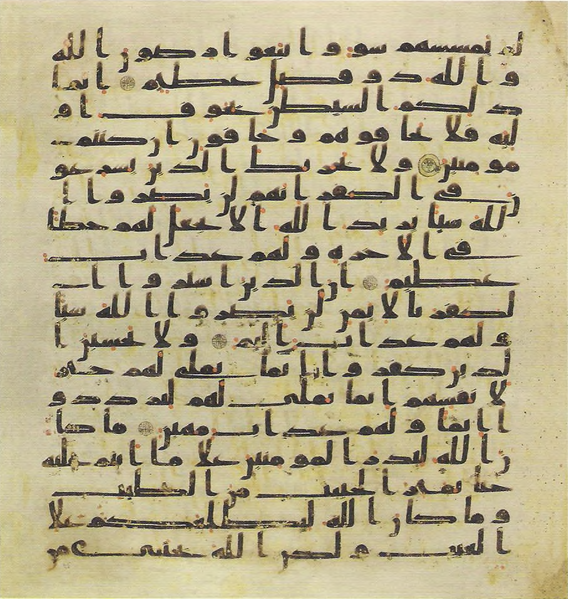 لم يمسسهم سو واتبعوا رضون الله
والله ذو فضل عظيم انما
ذلكم الشيطن يخوف او
ليه فلا تخافوهم وخافون ان كنتم
مومنين ولا يحزنك الذين يسرعو
ن في الكفر انهم لن يضروا ا
لله شيا يريد الله الا يجعل لهم حظا
في الاخرة ولهم عذاب
عظيم ان الذين اشتروا ا
لكفر بالايمن لن يضروا الله شيا
ولهم عذاب اليم ولا يحسبن ا
لذين كفروا انما نملي لهم خير
لانفسهم انما نملي لهم ليزددو
ا اثما ولهم عذاب مهين ما كا
ن الله ليذر المومنين علا ما انتم عليه
حتا يميز الخبيث من الطيب
وما كان الله ليطلعكم علا
الغيب ولكن الله يجتبي من